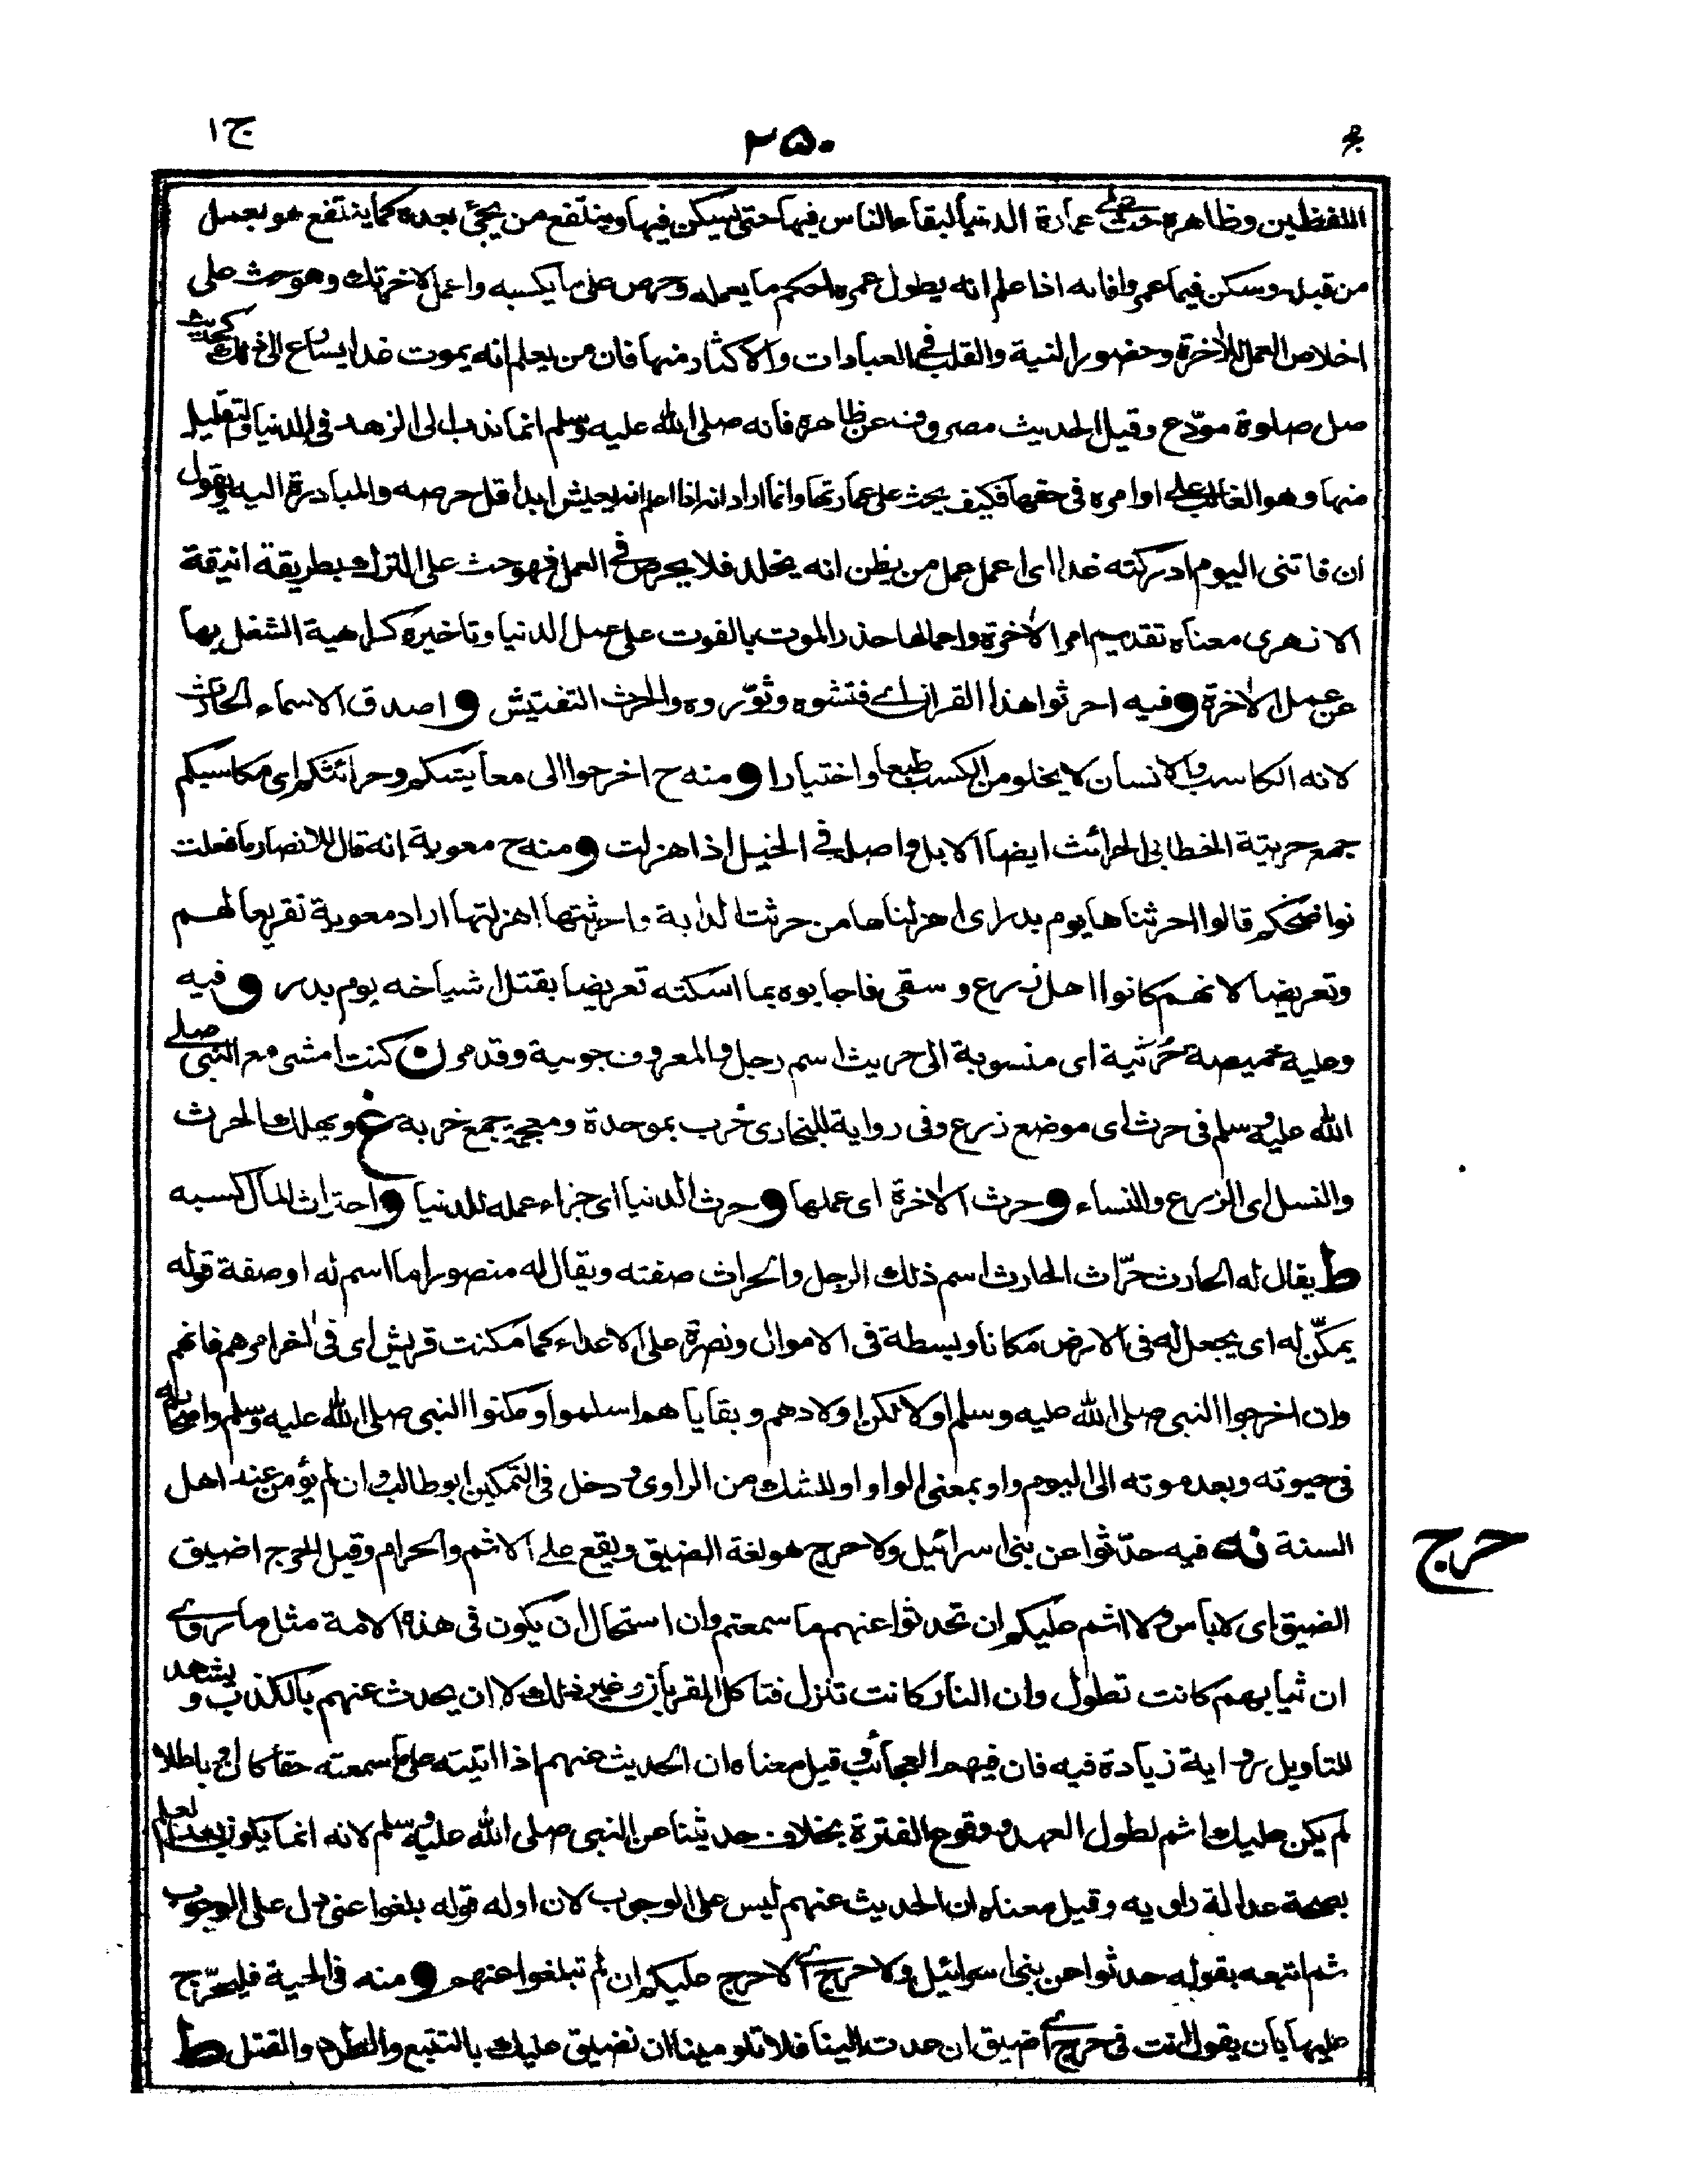 حر ٢٥٠ ج ١
اللفظين وظاهره حث على عمارة الدنيا لبقاء الناس فيها حتى يسكن فيها وينتفع من يجئ بعده كما ينتفع هو بعمل
من قبله وسكن فيما عمر وافانه اذا علم انه يطول عمره احكم ما يعمله وحرص على ما يكسبه واعمل لاخرتك وهو حث على
اخلاص العمل للاخرة وحضور النية والقلب في العبادات والاكثار منها فان من يعلم انه يموت غدا يسارع الى ذلك كحديث
صل صلوة مودّع وقيل الحديث مصروف عن ظاهره فانه صلى الله عليه وسلم انما ندب الى الزهد في الدنيا والتقليل
منها وهو الغالب على اوامره في حقها فكيف يحث على عمارتها وانما اراد انه اذا علم انه يعيش ابدا قل حرصه والمبادرة اليه ويقول
ان فاتنى اليوم ادركته غدا اى اعمل عمل من يظن انه يخلد فلا يحرص في العمل فهو حث على الترك بطريقة انيقة
الازهرى معناه تقديم امر الاخرة واعمالها حذر الموت بالفوت على عمل الدنيا وتاخيره كراهية الشغل بها
عن عمل الاخرة و فيه احرثوا هذا القران اے فتشوه وثوّروه والحرث التفتيش و اصدق الاسماء الحارث
لانه الكاسب والانسان لا يخلو من الكسب طبعا واختيارا و منه ح اخرجوا الى معايشكم وحرائثكم اى مكاسبكم
جمع حريثة الخطابى الحرائث ايضا الابل واصله في الخيل اذا هزلت و منه ح معوية انه قال للانصار ما فعلت
نواضحكم قالوا احرثناها يوم بدر اى اهزلناها من حرثت الدابة واحرثتها اهزلتها اراد معوية تقريعا لهم
وتعريضا لانهم كانوا اهل زرع و سقى فاجابوه بما اسكته تعريضا بقتل اشياخه يوم بدر و فيه
وعليه خميصة حُرَثية اى منسوبة الى حريث اسم رجل والمعروف جونية وقد مر ن كنت امشى مع النبى صلى
الله عليه وسلم فى حرث اى موضع زرع وفى رواية للبخارى خرب بموحدة ومعجمة جمع خربه غ ويهلك الحرث
والنسل اى الزرع والنساء و حرث الاخرة اى عملها و حرث الدنيا اى جزاء عمله للدنيا و احتراث المال كسبه
ط يقال له الحارث حرّاث الحارث اسم ذلك الرجل والحراث صفته ويقال له منصور اما اسم له او صفة قوله
يمكّن له اى يجعل له فى الارض مكانا وبسطة فى الاموال ونصرة على الاعداء كما مكنت قريش اى فى اخر امرهم فانهم
وان اخرجوا النبى صلى الله عليه وسلم اولا لكن اولادهم وبقاياهم اسلموا ومكنوا النبى صلى الله عليه وسلم واصحابه
فى حيوته وبعد موته الى اليوم واو بمعنى الواو او للشك من الراوى ودخل فى التمكين ابو طالب وان لم يؤمن عند اهل
السنة نه فيه حدّثوا عن بنى اسرائيل ولا حرج هو لغة الضيق ويقع على الاثم والحرام وقيل الحرج اضيق
حرج
الضيق اى لا باس ولا اثم عليكم ان تحدثوا عنهم ما سمعتم وان استحال ان يكون فى هذه الامة مثل ما روى
ان ثيابهم كانت تطول وان النار كانت تنزل فتاكل القربان وغير ذلك لا ان يحدث عنهم بالكذب و يشهد
للتاويل رواية زيادة فيه فان فيهم العجائب وقيل معناه ان الحديث عنهم اذا اتيته على ما سمعته حقا كان او باطلا
لم يكن عليك اثم لطول العهد ووقوع الفترة بخلاف حديثنا عن النبى صلى الله عليه وسلم لانه انما يكون بعد العلم
بصحة عدالة راويه وقيل معناه ان الحديث عنهم ليس على الوجوب لان اوله قوله بلغوا عنى دل على الوجوب
ثم اتبعه بقوله حدثوا عن بنى اسرائيل ولا حرج اے لا حرج عليكم ان لم تبلغوا عنهم و منه فى الحية فليحرّج
عليها بان يقول انت فى حرج اے ضيق ان عدت الينا فلا تلومينا ان نضيق عليك بالتتبع والطرد والقتل ط